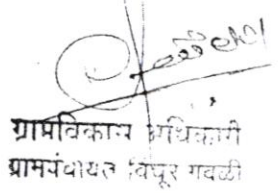 ग्रामविकास अधिकारी
ग्रामपंचायत विपूर गवळी